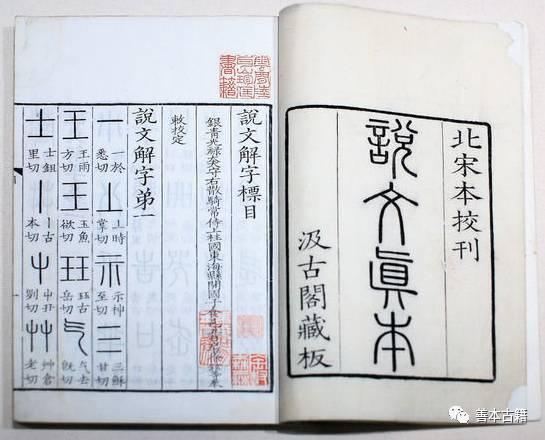 北宋本校刊
說文眞本
汲古閣藏板
說文解字標目
銀青光祿大夫守右散騎常侍上柱國東海縣開國子食邑五百戶臣徐鉉等奉
敕校定
說文解字弟一
一 一於悉切 丄 丄時掌切 示 示神至切 三 三穌甘切
王 王雨方切 玉 玉魚欲切 玨 玨古岳切 气 气去旣切
士 士鉏里切 丨 丨古本切 屮 屮丑切 艸 艸倉老切
善本古籍